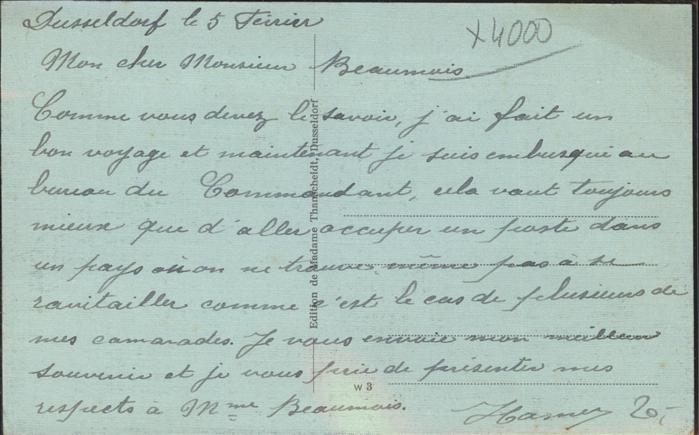 Dusseldorf le 5 Février
x4000
Mon cher Monsieur Beaumois
Comme vous devez le savoir, j'ai fait un
bon voyage et maintenant je suis embusqué au
bureau du Commandant, cela vaut toujours
mieux que d'aller occuper un poste dans
un pays où on ne trouve même pas à se
ravitailler comme c'est le cas de plusieurs de
mes camarades. Je vous envoie mon meilleur
souvenir et je vous prie de présenter mes
respects à Mme Beaumois.
20,-
Edition de Madame Thanscheidt, Dusseldorf
W 3